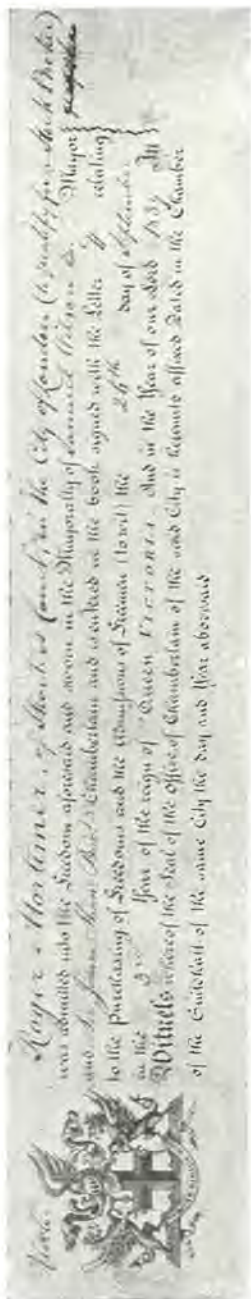 Roger Mortimer, of Shorter's Court, in the City of London (to qualify for a Stock Broker)
was admitted into the Freedom aforesaid and sworn in the Mayoralty of Samuel Wilson Esq. Mayor
and Sir James Shaw Bart. Chamberlain and is entered in the book signed with the Letter relating
to the Purchasing of Freedoms and the Admissions of Freemen (to wit) the 26th day of September
in the 3rd Year of the reign of Queen VICTORIA And in the Year of our Lord 1839 In
Witness whereof the Seal of the Office of Chamberlain of the said City is hereunto affixed Dated in the Chamber
of the Guildhall of the same City the day and Year abovesaid